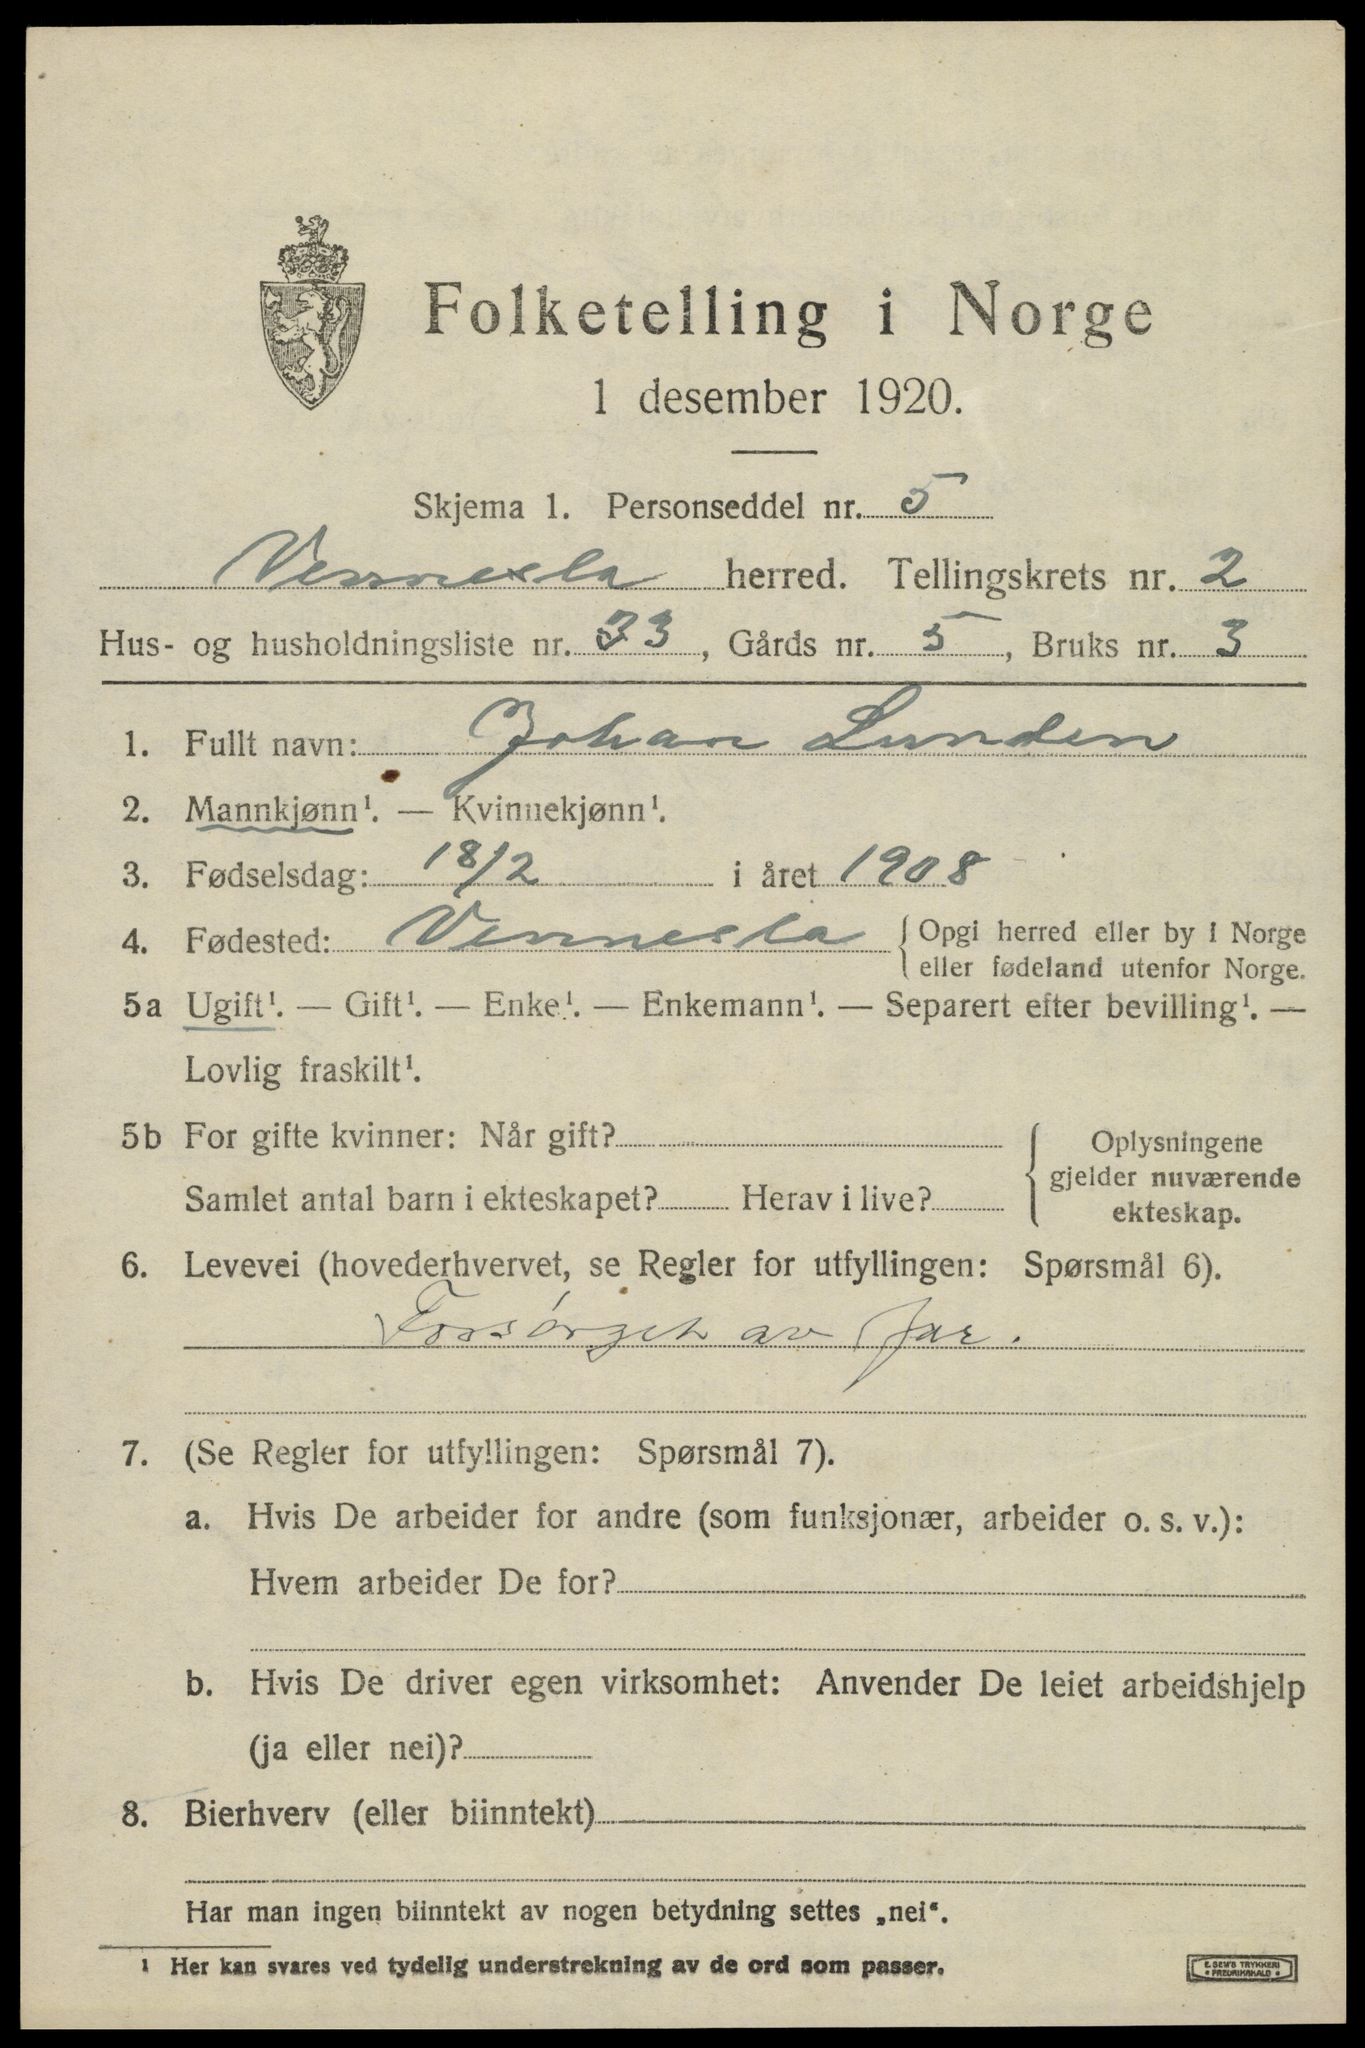 Folketelling i Norge
1 desember 1920.
Skjema 1. Personseddel nr. 5
Vennesla herred. Tellingskrets nr. 2
Hus- og husholdningsliste nr. 33, Gårds nr. 5, Bruks nr. 3
1. Fullt navn: Johan Lunden
2. Mannkjønn¹. — Kvinnekjønn¹.
3. Fødselsdag: 18/2 i året 1908
4. Fødested: Vennesla { Opgi herred eller by i Norge
eller fødeland utenfor Norge.
5a Ugift¹. — Gift¹. — Enke¹. — Enkemann¹. — Separert efter bevilling¹. —
Lovlig fraskilt¹.
5b For gifte kvinner: Når gift? { Oplysningene
gjelder nuværende
Samlet antal barn i ekteskapet? Herav i live?
ekteskap.
6. Levevei (hovederhvervet, se Regler for utfyllingen: Spørsmål 6).
Forsørget av far.
7. (Se Regler for utfyllingen: Spørsmål 7).
a. Hvis De arbeider for andre (som funksjonær, arbeider o. s. v.):
Hvem arbeider De for?
b. Hvis De driver egen virksomhet: Anvender De leiet arbeidshjelp
(ja eller nei)?
8. Bierhverv (eller biinntekt)
Har man ingen biinntekt av nogen betydning settes „nei“.
¹ Her kan svares ved tydelig understrekning av de ord som passer.
E. SEM'S TRYKKERI
• FREDRIKSHALD •